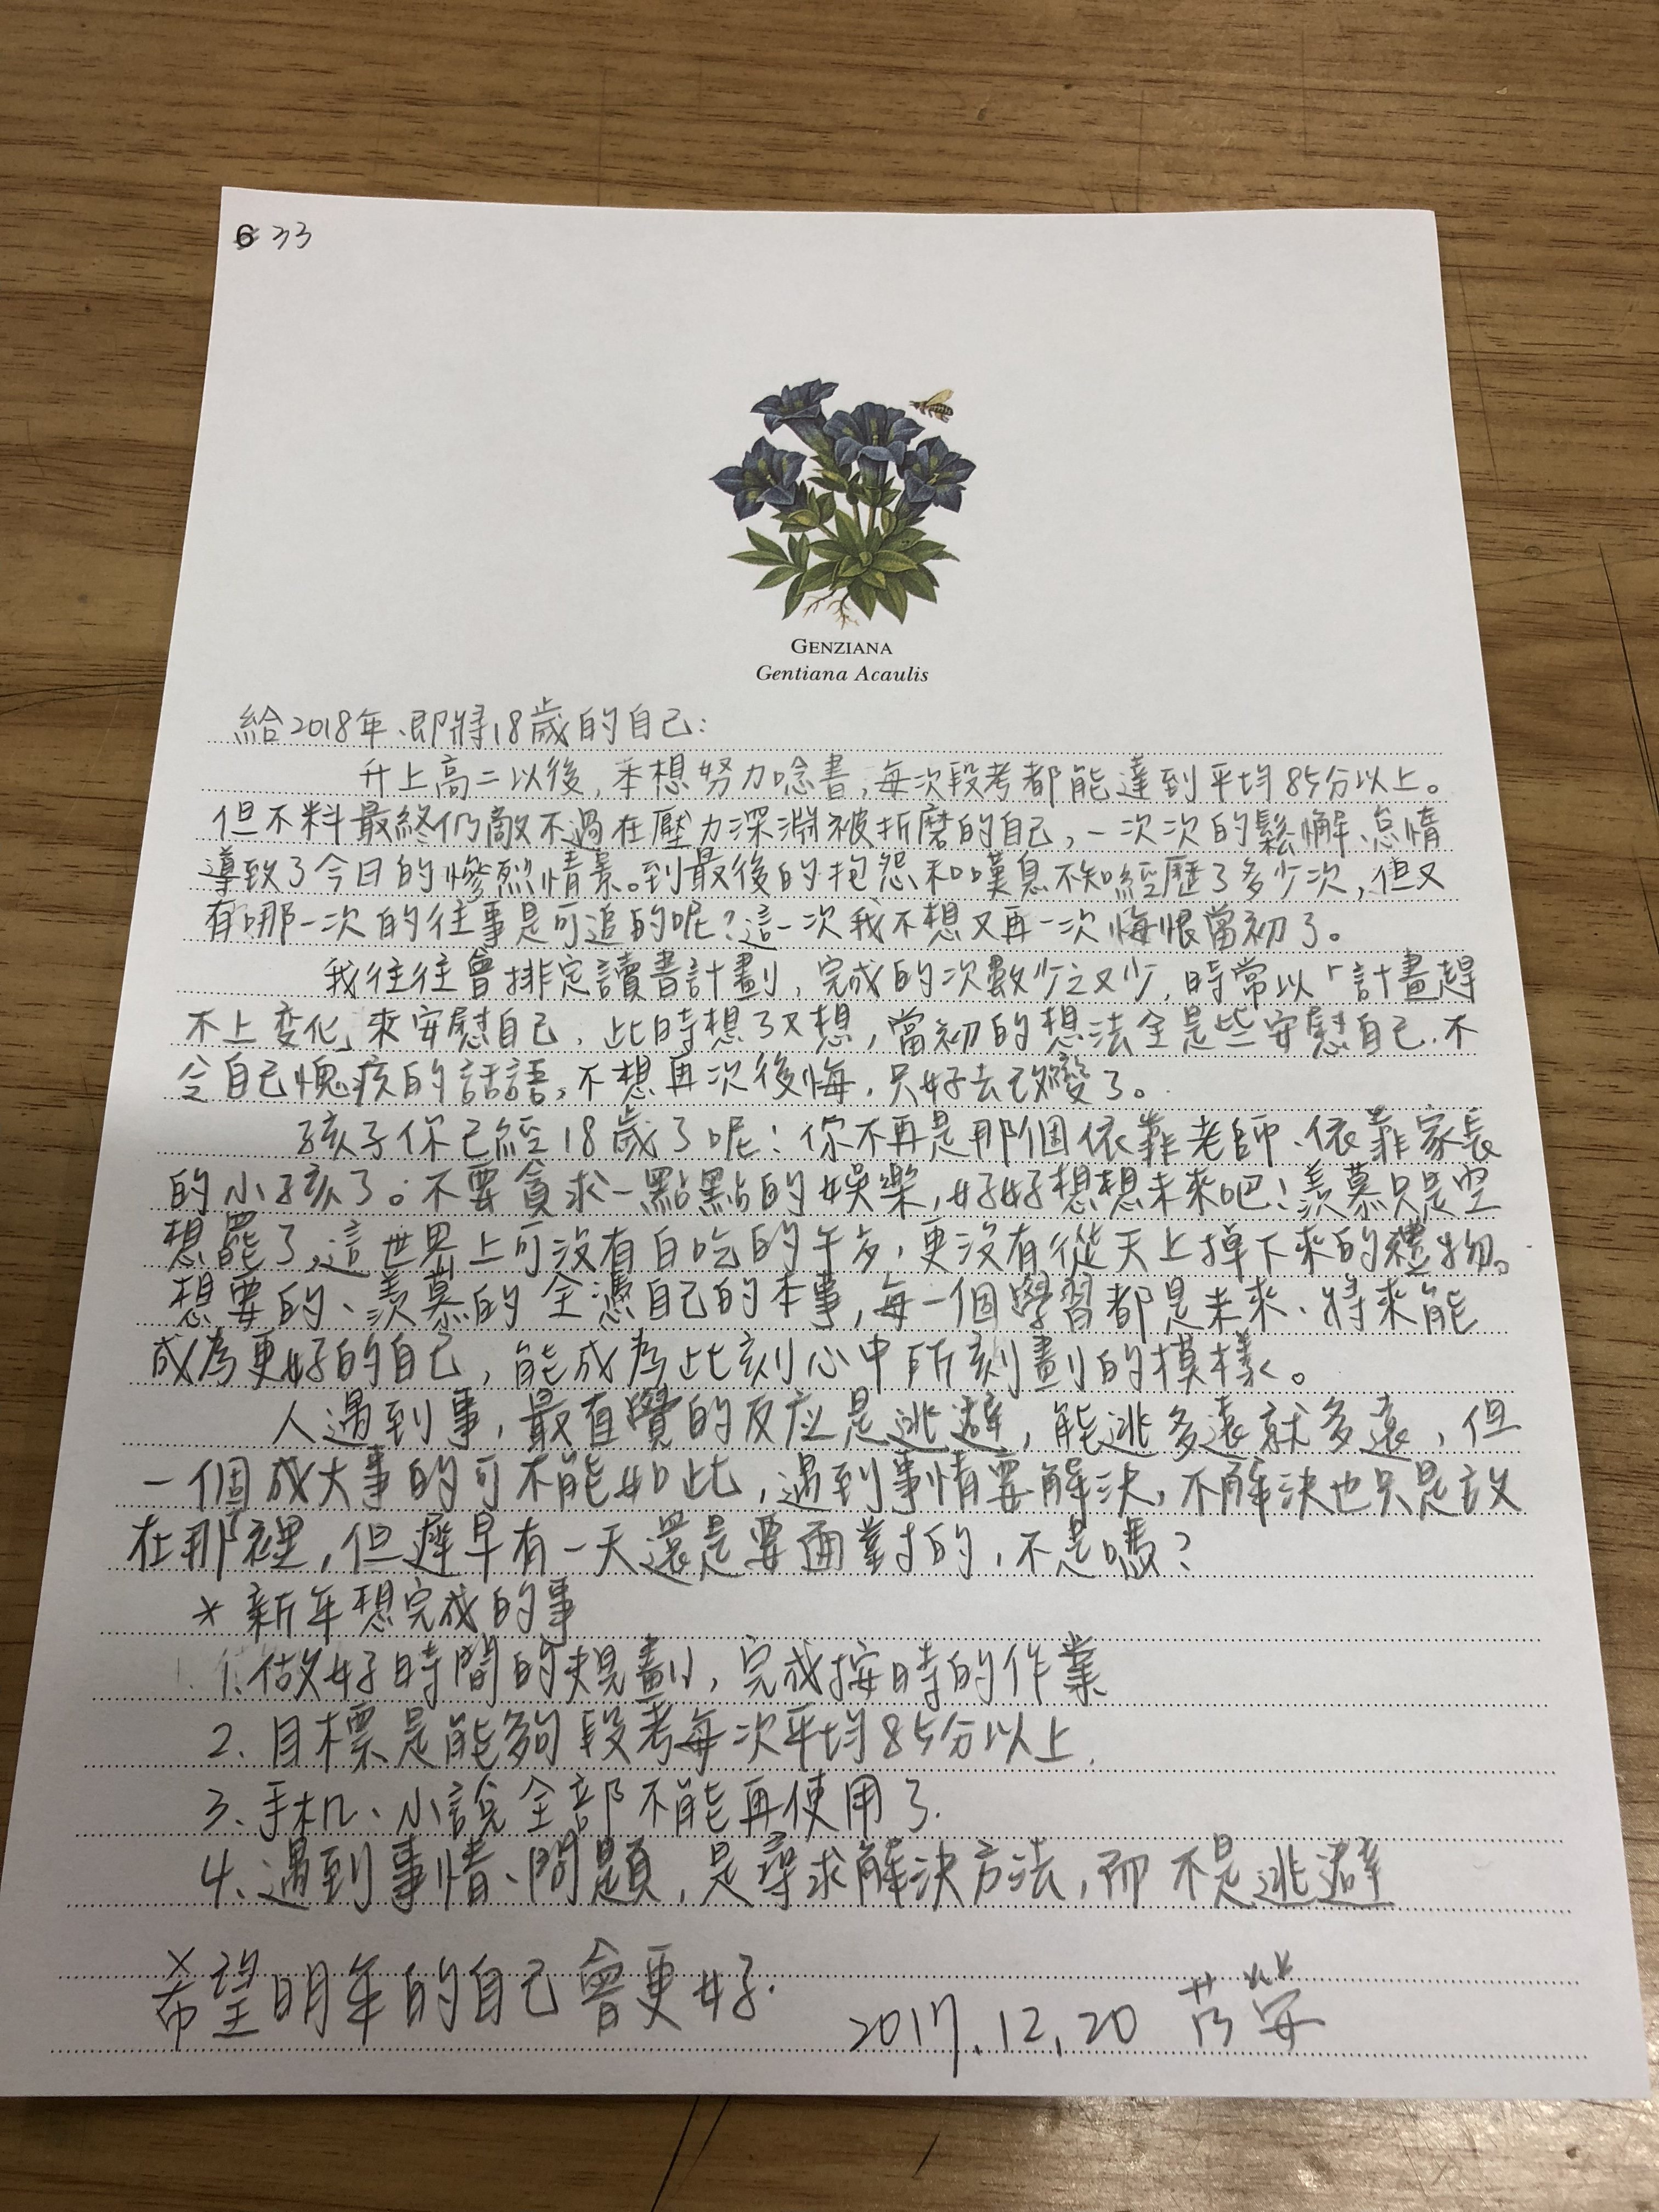 6 33
GENZIANA
Gentiana Acaulis
給2018年、即將18歲的自己：
升上高二以後，本想努力唸書，每次段考都能達到平均85分以上。
但不料最終仍敵不過在壓力深淵被折磨的自己，一次次的鬆懈、怠惰
導致了今日的慘烈情景。到最後的抱怨和嘆息不知經歷了多少次，但又
有哪一次的往事是可追的呢？這一次我不想又再一次悔恨當初了。
我往往會排定讀書計劃，完成的次數少之又少，時常以「計畫趕
不上变化」來安慰自己，此時想了又想，當初的想法全是些安慰自己、不
令自己愧疚的話語，不想再次後悔，只好去改變了。
孩子你已經18歲了呢！你不再是那個依靠老師、依靠家長
的小孩了。不要貪求一點點的娛樂，好好想想未來吧！羨慕只是空
想罷了，這世界上可沒有白吃的午歺，更沒有從天上掉下來的禮物。
想要的、羨慕的全憑自己的本事，每一個學習都是未來、將來能
成為更好的自己，能成為此刻心中所刻劃的模樣。
人遇到事，最直覺的反应是逃避，能逃多遠就多遠，但
一個成大事的可不能如此，遇到事情要解決，不解決也只是放
在那裡，但遲早有一天還是要面對的，不是嗎？
* 新年想完成的事
1. 做好時間的規劃，完成按時的作業
2. 目標是能夠段考每次平均85分以上.
3、手机、小說全部不能再使用了.
4、遇到事情、問題，是尋求解決方法，而不是逃避
希望明年的自己會更好.
2017.12.20 芳安